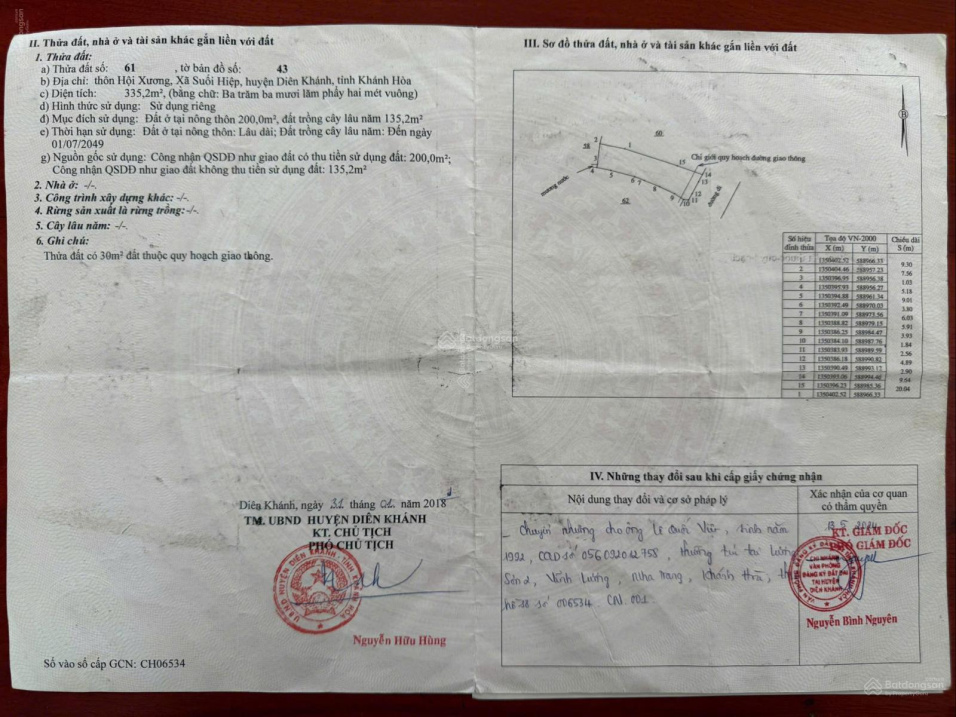 II. Thửa đất, nhà ở và tài sản khác gắn liền với đất
1. Thửa đất:
a) Thửa đất số: 61 , tờ bản đồ số: 43
b) Địa chỉ: thôn Hội Xương, Xã Suối Hiệp, huyện Diên Khánh, tỉnh Khánh Hòa
c) Diện tích: 335,2m², (bằng chữ: Ba trăm ba mươi lăm phẩy hai mét vuông)
d) Hình thức sử dụng: Sử dụng riêng
đ) Mục đích sử dụng: Đất ở tại nông thôn 200,0m², đất trồng cây lâu năm 135,2m²
e) Thời hạn sử dụng: Đất ở tại nông thôn: Lâu dài; Đất trồng cây lâu năm: Đến ngày
01/07/2049
g) Nguồn gốc sử dụng: Công nhận QSDĐ như giao đất có thu tiền sử dụng đất: 200,0m²;
Công nhận QSDĐ như giao đất không thu tiền sử dụng đất: 135,2m²
2. Nhà ở: -/-.
3. Công trình xây dựng khác: -/-.
4. Rừng sản xuất là rừng trồng:-/-.
5. Cây lâu năm: -/-.
6. Ghi chú:
Thửa đất có 30m² đất thuộc quy hoạch giao thông.
Diên Khánh, ngày 31 tháng 01 năm 2018
TM. UBND HUYỆN DIÊN KHÁNH
KT. CHỦ TỊCH
PHÓ CHỦ TỊCH
Nguyễn Hữu Hùng
Số vào sổ cấp GCN: CH06534
III. Sơ đồ thửa đất, nhà ở và tài sản khác gắn liền với đất
60
62
Chỉ giới quy hoạch đường giao thông
mương nước
đường đi
Số hiệu đỉnh thửa Tọa độ VN-2000 Chiều dài
X (m) Y (m) S (m)
1 1350402.52 588966.35
9.70
2 1350404.46 588957.23
7.56
3
1.03
4
5.18
5 1350394.88 588961.34
9.01
6 1350392.49 588970.03
3.80
7 1350391.09 588973.56
6.03
8 1350388.82 588979.15
5.91
9 1350386.25 588984.47
3.93
10 1350384.10 588987.76
1.84
11 1350383.93 588989.59
2.56
12 1350386.18 588990.82
4.89
13 1350390.49 588993.12
2.90
14
15 1350396.23 588985.36
20.04
1 1350402.52 588966.35
IV. Những thay đổi sau khi cấp giấy chứng nhận
Nội dung thay đổi và cơ sở pháp lý
Xác nhận của cơ quan
có thẩm quyền
_ Chuyển nhượng cho ông Lê , sinh năm
, CCCD số , thường trú tại Lương
Sơn 2, Vĩnh Lương, Nha Trang, Khánh Hòa,
hồ sơ số 006534 CN.001.
KT. GIÁM ĐỐC
PHÓ GIÁM ĐỐC
CHI NHÁNH
VĂN PHÒNG
ĐĂNG KÝ ĐẤT ĐAI
TẠI HUYỆN
DIÊN KHÁNH
Nguyễn Bình Nguyên
Batdongsan